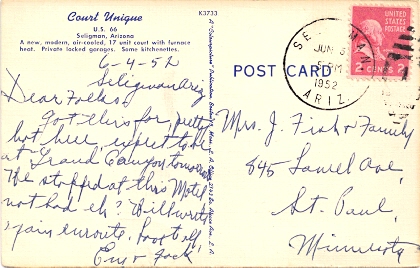 Court Unique
U.S. 66
Seligman, Arizona
A new, modern, air-cooled, 17 unit court with furnace
heat. Private locked garages. Some kitchenettes.
K3733
6-4-52
Seligman Ariz
Dear Folks:
Got this far, pretty
hot here, expect to be
at Grand Canyon tomorrow
We stopped at this Motel
not bad eh? Will write
again enroute, Love to all,
Jack
POST CARD
SE MAN
JUN 5
PM
1952
ARIZ.
UNITED STATES
POSTAGE
2 CENTS 2
Mrs. J. Fish & Family
845 Laurel Ave,
St. Paul,
Minnesota